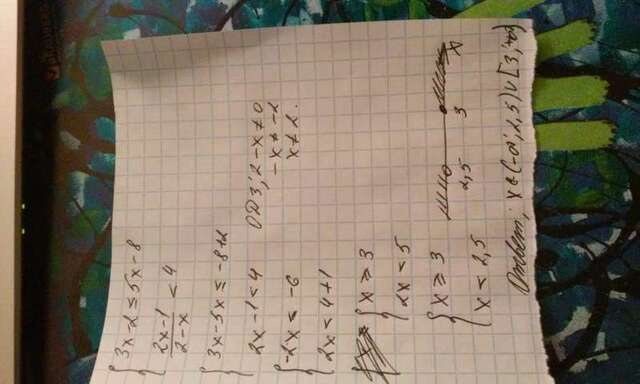 { 3x-2 ≤ 5x-8
2x-1
2-x < 4
{ 3x-5x ≤ -8+2
2x-1 < 4 ОДЗ; 2-x ≠ 0
-x ≠ -2
{ -2x ≤ -6 x ≠ 2.
2x < 4+1
{ x ≥ 3
2x < 5
{ x ≥ 3
x < 2,5
2,5 3 x
Ответ; x ∈ (-∞; 2,5) ∪ [3; +∞)